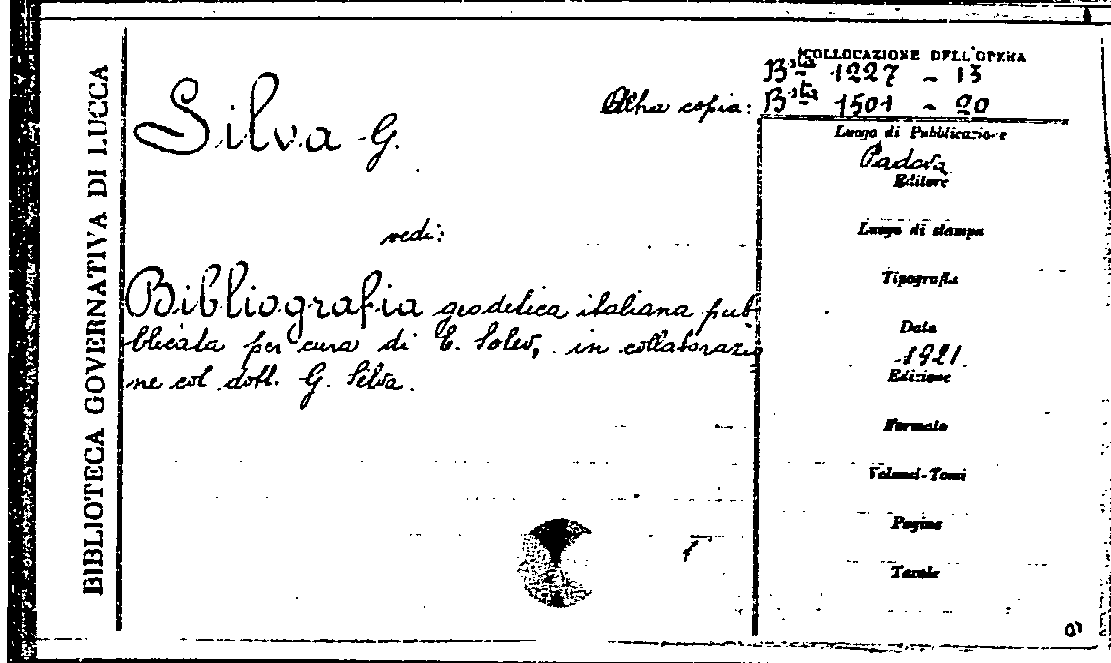 BIBLIOTECA GOVERNATIVA DI LUCCA
COLLOCAZIONE DELL'OPERA
Bsta 1227 - 13
Altra copia: Bsta 1501 - 20
Silva G.
vedi:
Bibliografia geodetica italiana pub-
blicata per cura di E. Soler, in collaborazio
ne col dott. G. Silva.
Luogo di Pubblicazione
Padova
Editore
Luogo di stampa
Tipografia
Data
1921.
Edizione
Formato
Volumi-Tomi
Pagine
Tavole